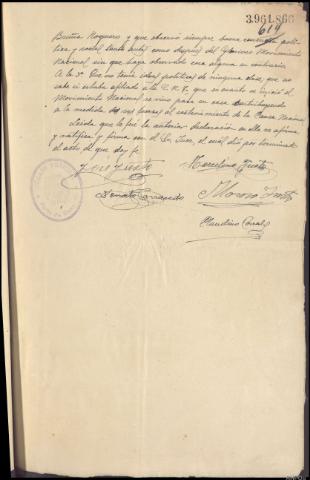 3.961.866
614
Baños Noguero y que observó siempre buena conducta polí-
tica y social tanto antes como despues del Glorioso Movimiento
Nacional sin que haya observado cosa alguna en contrario
A la 3ª Que no tenia ideas políticas de ninguna clase, que no
sabe si estaba afiliado a la C.N.T., que en cuanto se inició el
Movimiento Nacional se vino para su casa contribuyendo
a la medida de sus fuerzas al sostenimiento de la Causa Nacional
Leida que le fué la anterior declaración en ella se afirma
y ratifica y firma con el Sr. Juez, el cual dió por terminado
el acto de que doy fe
José Justo
Marcelino Justo
Donato
Claudino Corral